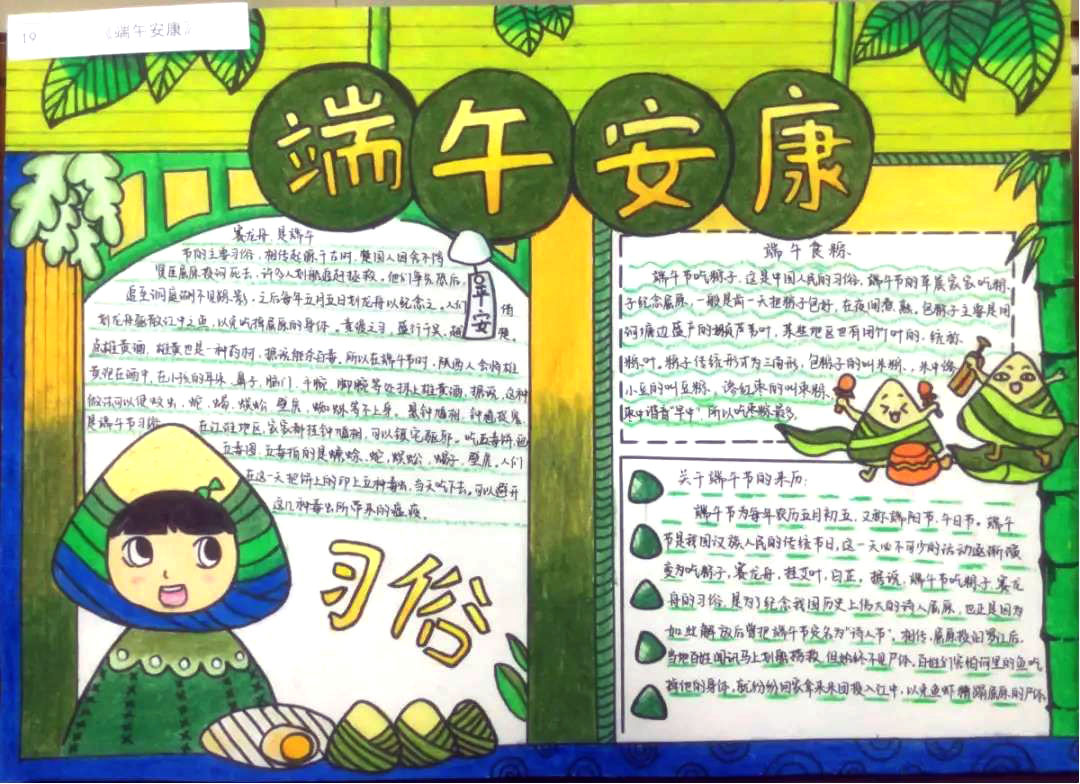 19 《端午安康》
端午安康
赛龙舟,是端午
节的主要习俗,相传起源于古时,楚国人因舍不得
贤臣屈原投河死去,许多人划船追赶拯救。他们争先恐后,
追至洞庭湖不见踪影,之后每年五月五日划龙舟以纪念之。人们
划龙舟驱散江中之鱼,以免吃掉屈原的身体。
点雄黄酒,雄黄也是一种药材,据说能杀百毒,所以在端午节时,陕西人会将雄
黄泡在酒中,在小孩的耳朵、鼻子、脑门、手腕、脚腕等处抹上雄黄酒,据说,这种
做法可以使蚊虫,蛇,蝎,蜈蚣,壁虎,蜘蛛等不上身。悬钟馗像,钟馗捉鬼,
是端午节习俗 在江淮地区,家家都挂钟馗像,可以镇宅驱邪。吃五毒饼,画
五毒图,五毒指的是蟾蜍,蛇,蜈蚣,蝎子,壁虎。人们
在这一天把饼上的印上五种毒虫,当天吃下去。可以避开
这几种毒虫所带来的瘟疫。
平安
习俗
端午食粽、
端午节吃粽子,这是中国人民的习俗,端午节的早晨家家吃粽
子纪念屈原,一般是前一天把粽子包好,在夜间煮熟。包粽子主要是用
河塘边盛产的嫩芦苇叶,某些地区也有用竹叶的,统称
粽叶。粽子传统形式为三角形,包粽子的叫米粽、,米中掺
小豆的叫豆粽、掺红枣的叫枣粽、
枣中谐音"早中",所以吃枣粽最多。
关于端午节的来历:
端午节为每年农历五月初五,又称端阳节、午日节。端午
节是我国汉族人民的传统节日,这一天必不可少的活动逐渐演
变为吃粽子,赛龙舟,挂艾叶,白芷。据说,端午节吃粽子,赛龙
舟的习俗,是为了纪念我国历史上伟大的诗人屈原,也正是因为
如此解放后曾把端午节定名为"诗人节"。相传,屈原投汨罗江后,
当地百姓闻讯马上划船捞救,但始终不见尸体,百姓们害怕河里的鱼吃
掉他的身体,就纷纷回家拿来米团投入江中,以免鱼虾糟蹋屈原的尸体